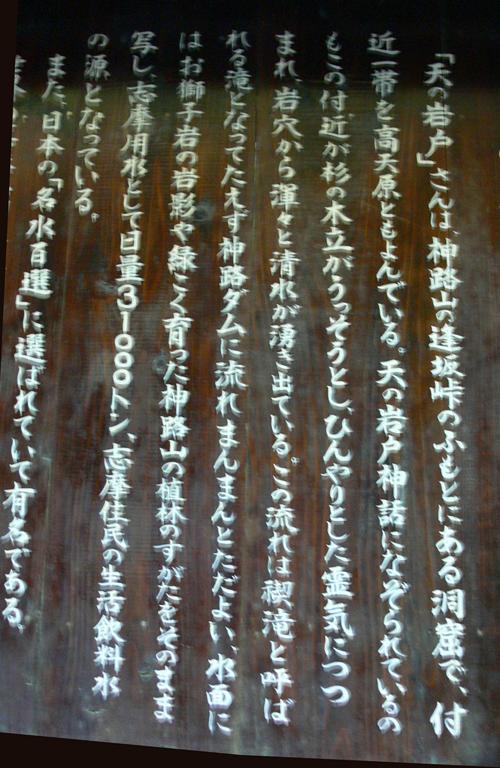 「天の岩戸」さんは、神路山の逢坂峠のふもとにある洞窟で、付
近一帯を高天原ともよんでいる。天の岩戸神話になぞられているの
もこの付近が杉の木立がうっそうとし、ひんやりとした霊気につつ
まれ、岩穴から渾々と清水が湧き出ている。この流れは禊滝と呼ば
れる滝となってたえず神路ダムに流れまんまんとただよい、水面に
はお獅子岩の岩影や緑こく育った神路山の植林のすがたをそのまま
写し、志摩用水として日量31000トン、志摩住民の生活飲料水
の源となっている。
また、日本の「名水百選」に選ばれていて有名である。